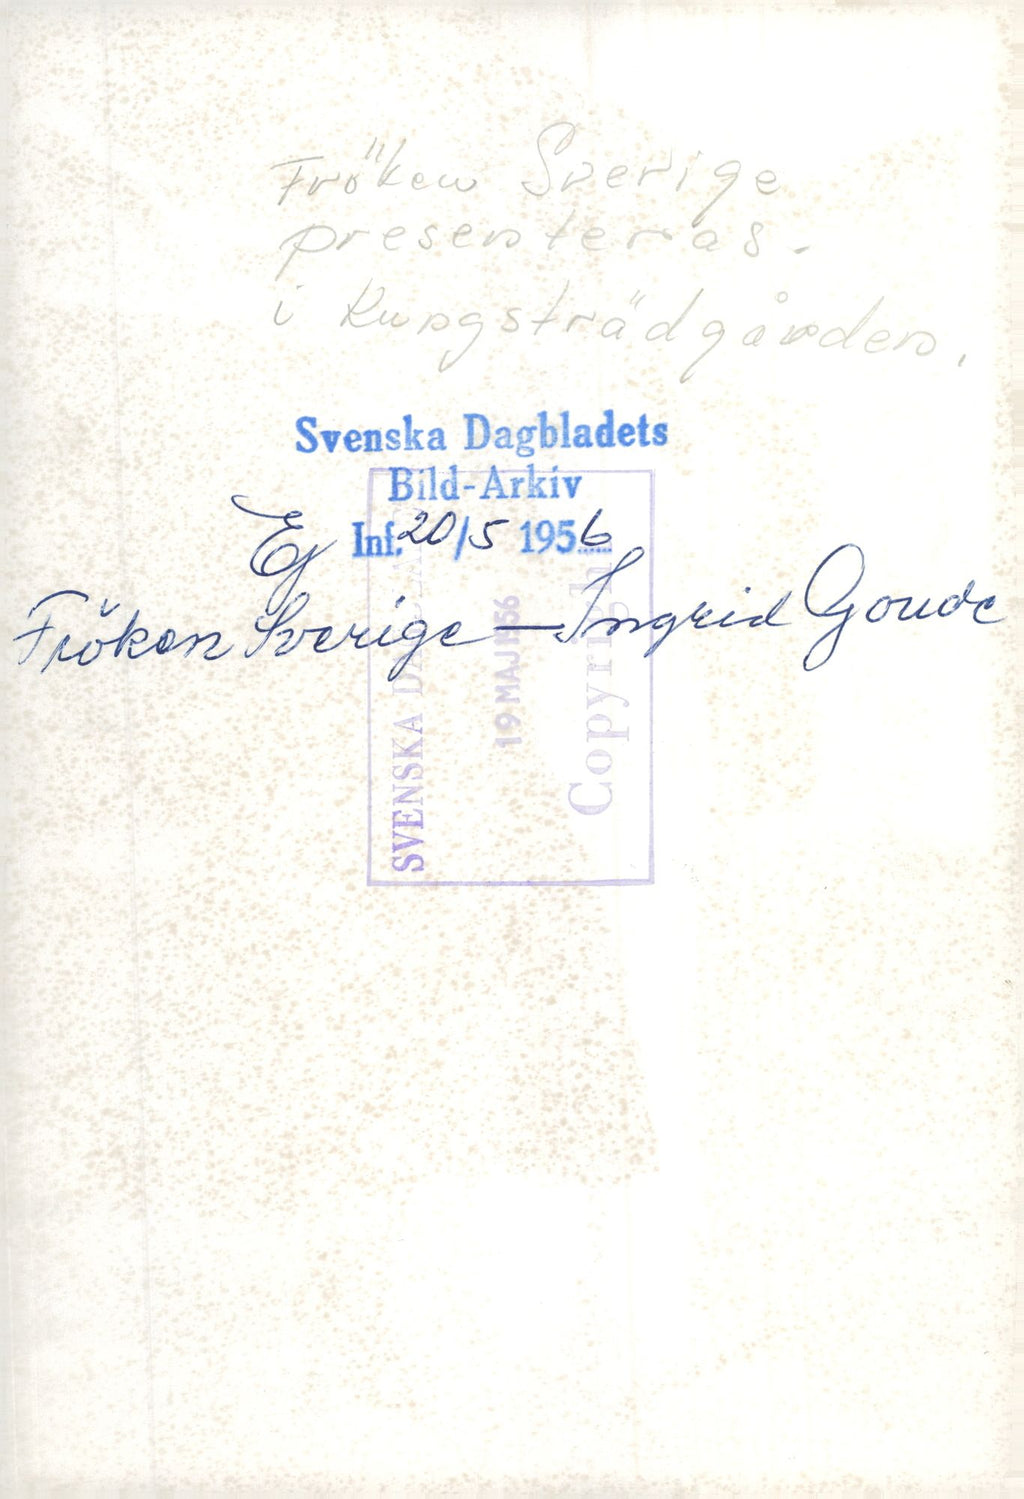 Fröken Sverige
presenteras.
i Kungsträdgården.
Svenska Dagbladets
Bild-Arkiv
Ej Inf. 20/5 1956
Fröken Sverige — Ingrid Goude
SVENSKA DAGBLADET
19 MAJ 1956
Copyright